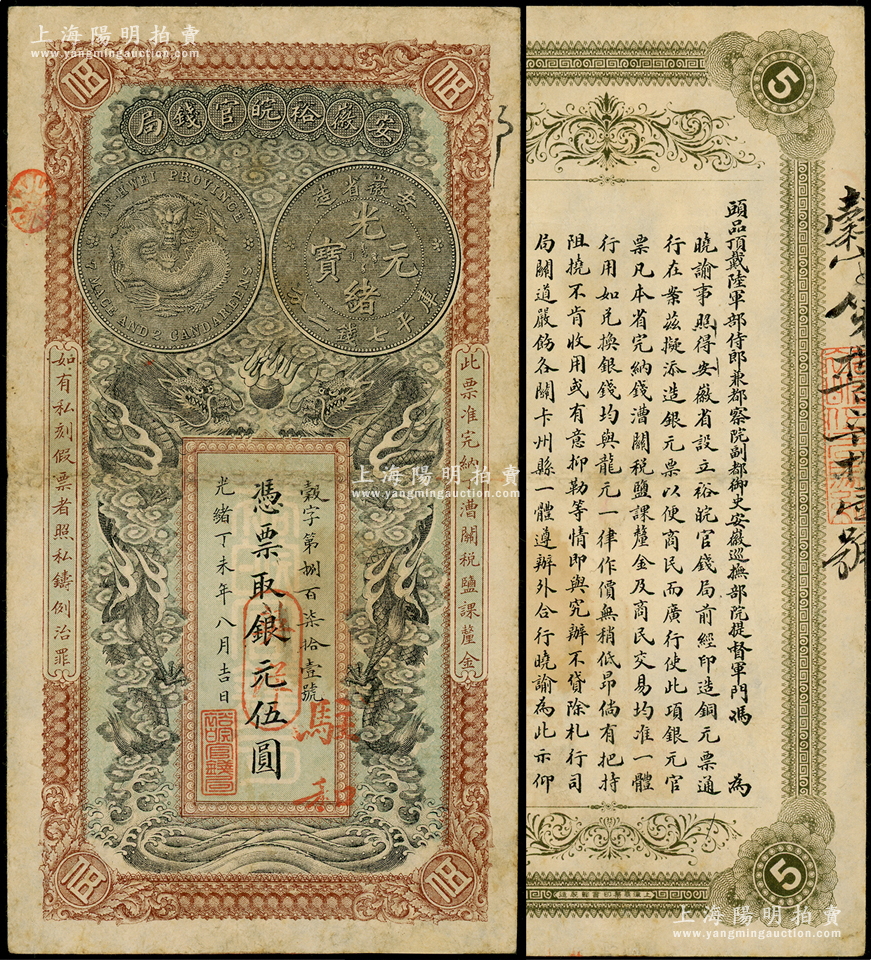 上海陽明拍賣
www.yangmingauction.com
伍
伍
安徽裕皖官錢局
AN-HWEI PROVINCE
7 MACE AND 2 CANDAREENS
安徽省造
光緒元寶
庫平七錢二分
此票准完納錢漕關稅鹽課釐金
如有私刻假票者照私鑄例治罪
穀字第捌百柒拾壹號
憑票取銀元伍圓
光緒丁未年八月吉日
伍
伍
5
頭品頂戴陸軍部侍郎兼都察院副都御史安徽巡撫部院提督軍門馮 為
曉諭事照得安徽省設立裕皖官錢局前經印造銅元票通
行在案茲擬添造銀元票以便商民而廣行使此項銀元官
票凡本省完納錢漕關稅鹽課釐金及商民交易均准一體
行用如兌換銀錢均與龍元一律作價無稍低昂倘有把持
阻撓不肯收用或有意抑勒等情即與究辦不貸除札行司
局關道嚴飭各關卡州縣一體遵辦外合行曉諭為此示仰
5
上海陽明拍賣
www.yangmingauction.com
上海陽明拍賣
www.yangmingauction.com